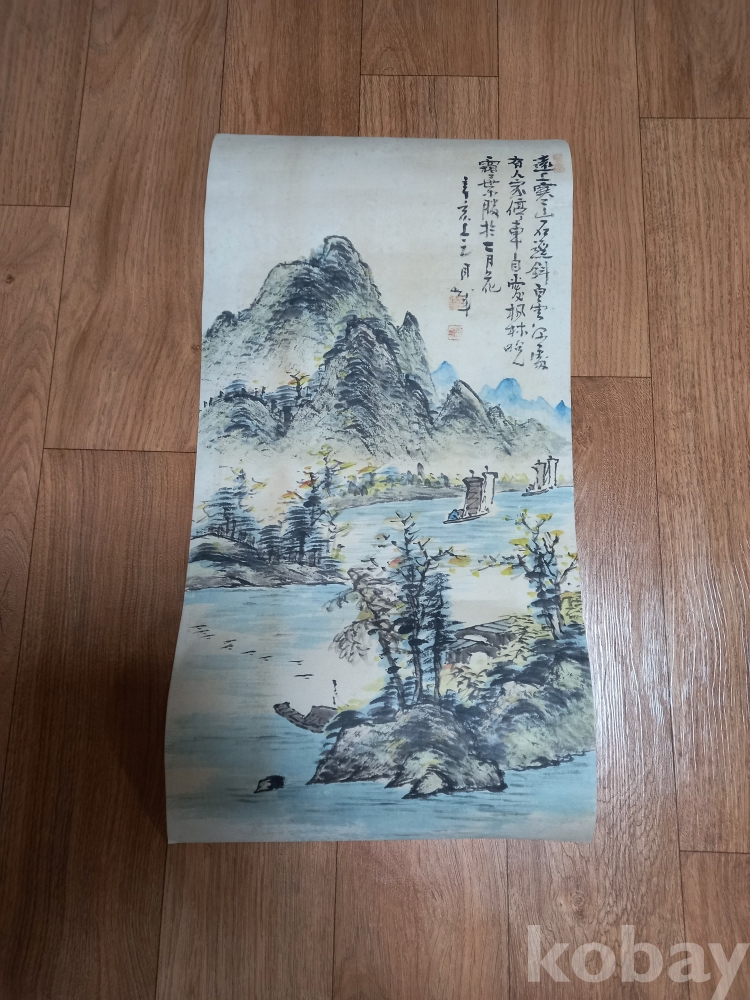 遠上寒山石逕斜白雲深處
有人家停車自愛楓林晚
霜葉勝於二月花
辛亥
kobay